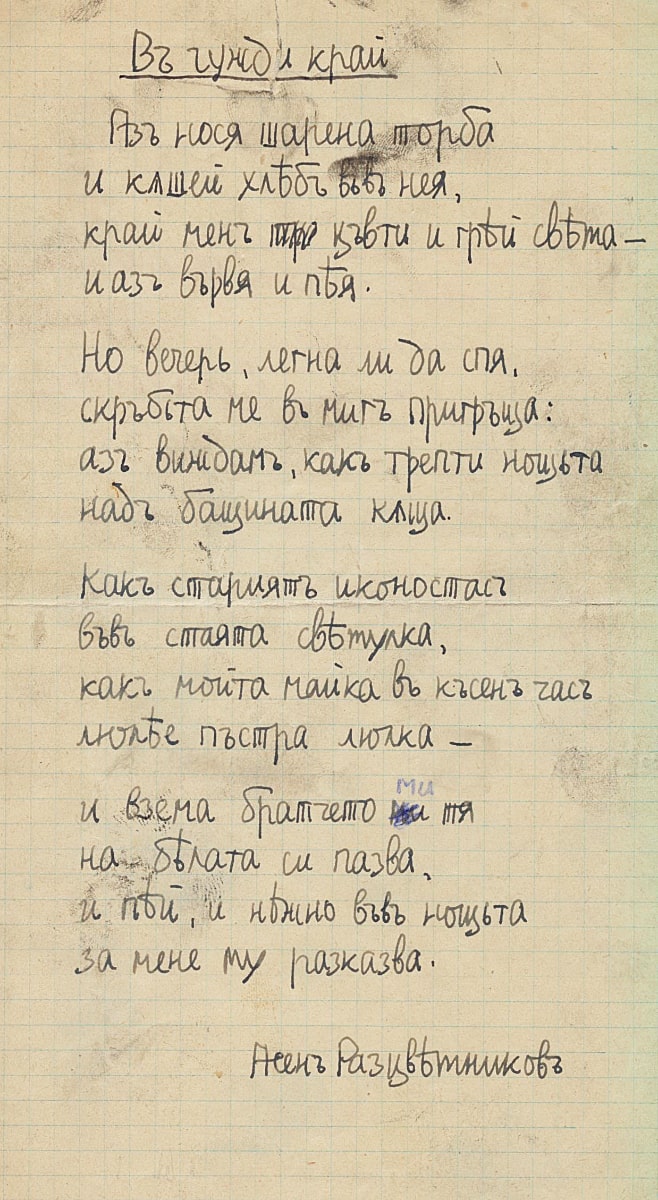 Въ чужди край
Азъ нося шарена торба
и къшей хлѣбъ въвъ нея,
край менъ цъвти и грѣй свѣта —
и азъ вървя и пѣя.
Но вечерь, легна ли да спя,
скръбьта ме въ мигъ пригръща:
азъ виждамъ, какъ трепти нощьта
надъ бащината кѫща.
Какъ стариятъ иконостасъ
въвъ стаята свѣтулка,
какъ мойта майка въ късенъ часъ
люлѣе пъстра люлка —
и взема братчето ми тя
на бѣлата си пазва,
и пѣй, и нѣжно въвъ нощьта
за мене му разказва.
Асенъ Разцвѣтниковъ